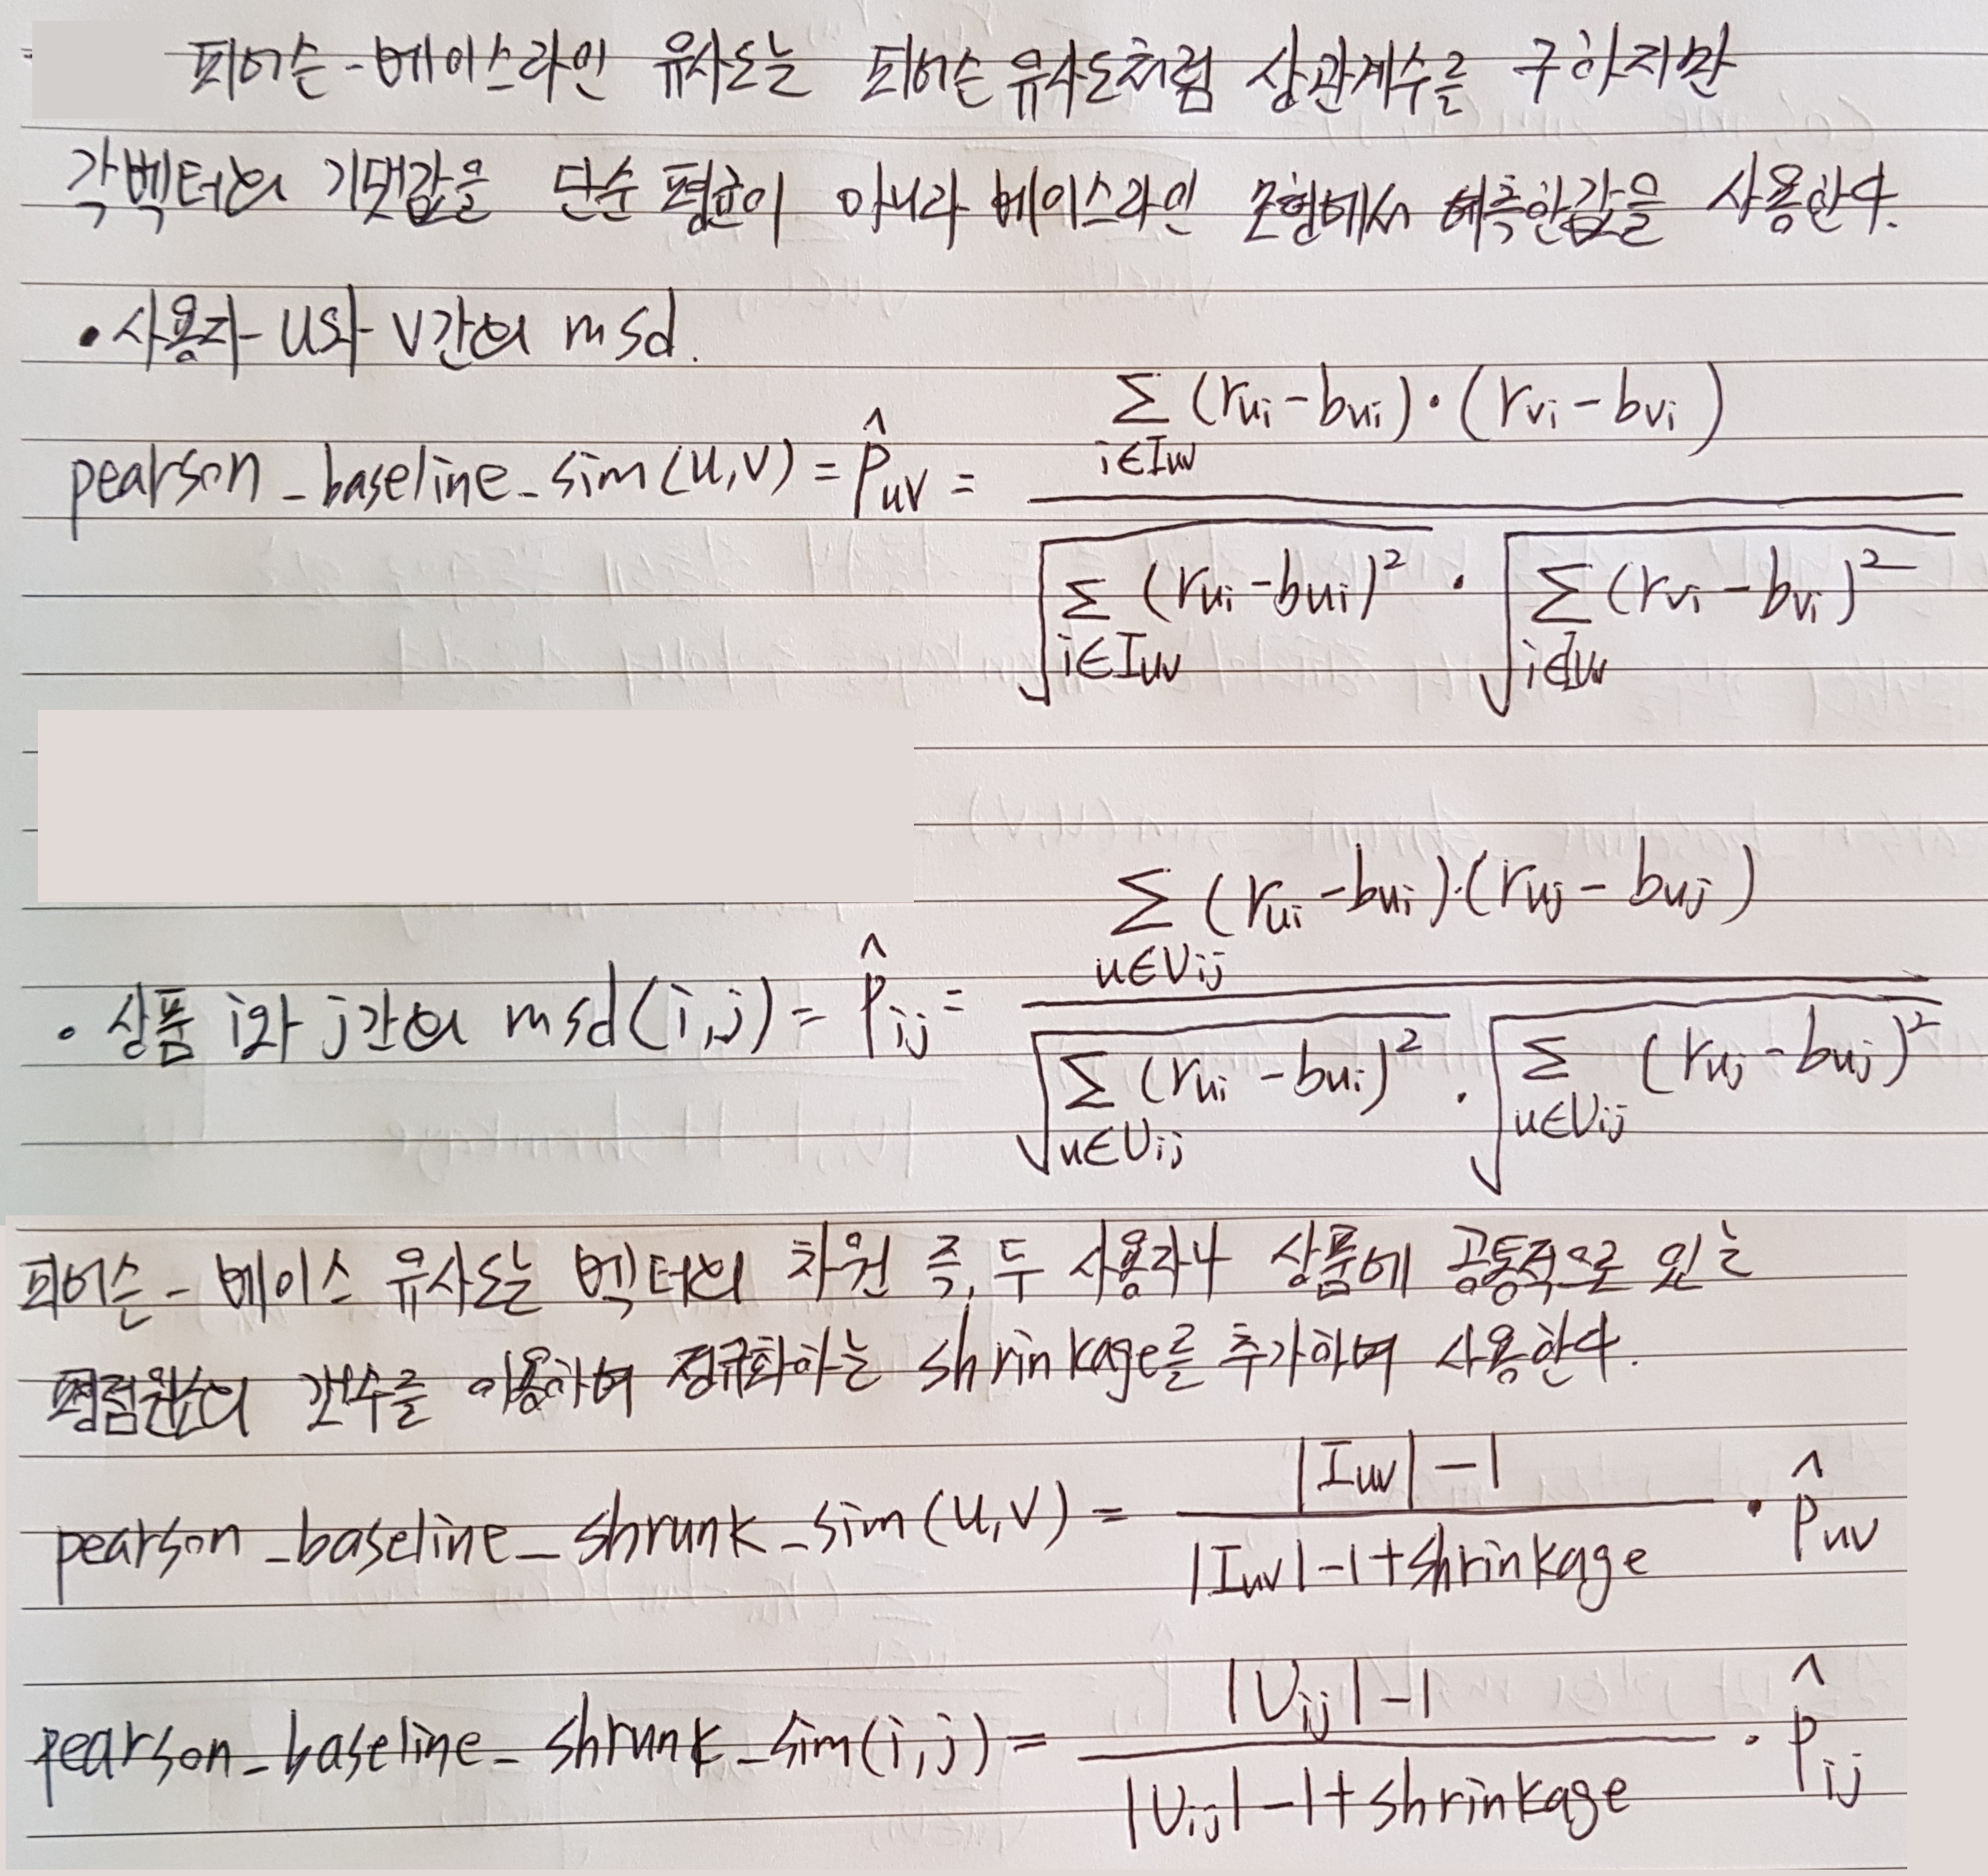 피어슨-베이스라인 유사도는 피어슨 유사도처럼 상관계수를 구하지만
각 벡터의 기댓값을 단순 평균이 아니라 베이스라인 모형에서 예측한 값을 사용한다.
• 사용자 u와 v간의 msd.
pearson_baseline_sim(u,v) = p̂_uv = Σ_{i∈I_uv} (r_ui - b_ui)·(r_vi - b_vi) / √(Σ_{i∈I_uv} (r_ui - b_ui)²) · √(Σ_{i∈I_uv} (r_vi - b_vi)²)
• 상품 i와 j간의 msd(i,j) = p̂_ij = Σ_{u∈U_ij} (r_ui - b_ui)·(r_uj - b_uj) / √(Σ_{u∈U_ij} (r_ui - b_ui)²) · √(Σ_{u∈U_ij} (r_uj - b_uj)²)
피어슨-베이스 유사도는 벡터의 차원 즉, 두 사용자나 상품에 공통적으로 있는
평점원소의 갯수를 이용하여 정규화하는 shrinkage를 추가하여 사용한다.
pearson_baseline_shrunk_sim(u,v) = |I_uv| - 1 / |I_uv| - 1 + shrinkage · p̂_uv
pearson_baseline_shrunk_sim(i,j) = |U_ij| - 1 / |U_ij| - 1 + shrinkage · p̂_ij